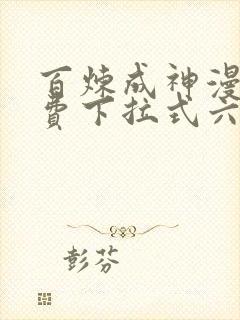 百炼成神漫
费下拉式六
彭芬